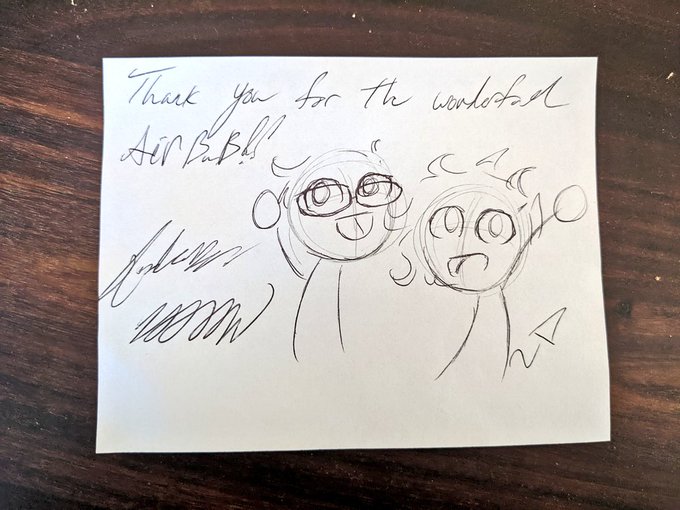 Thank you for the wonderful
AirBnB!!